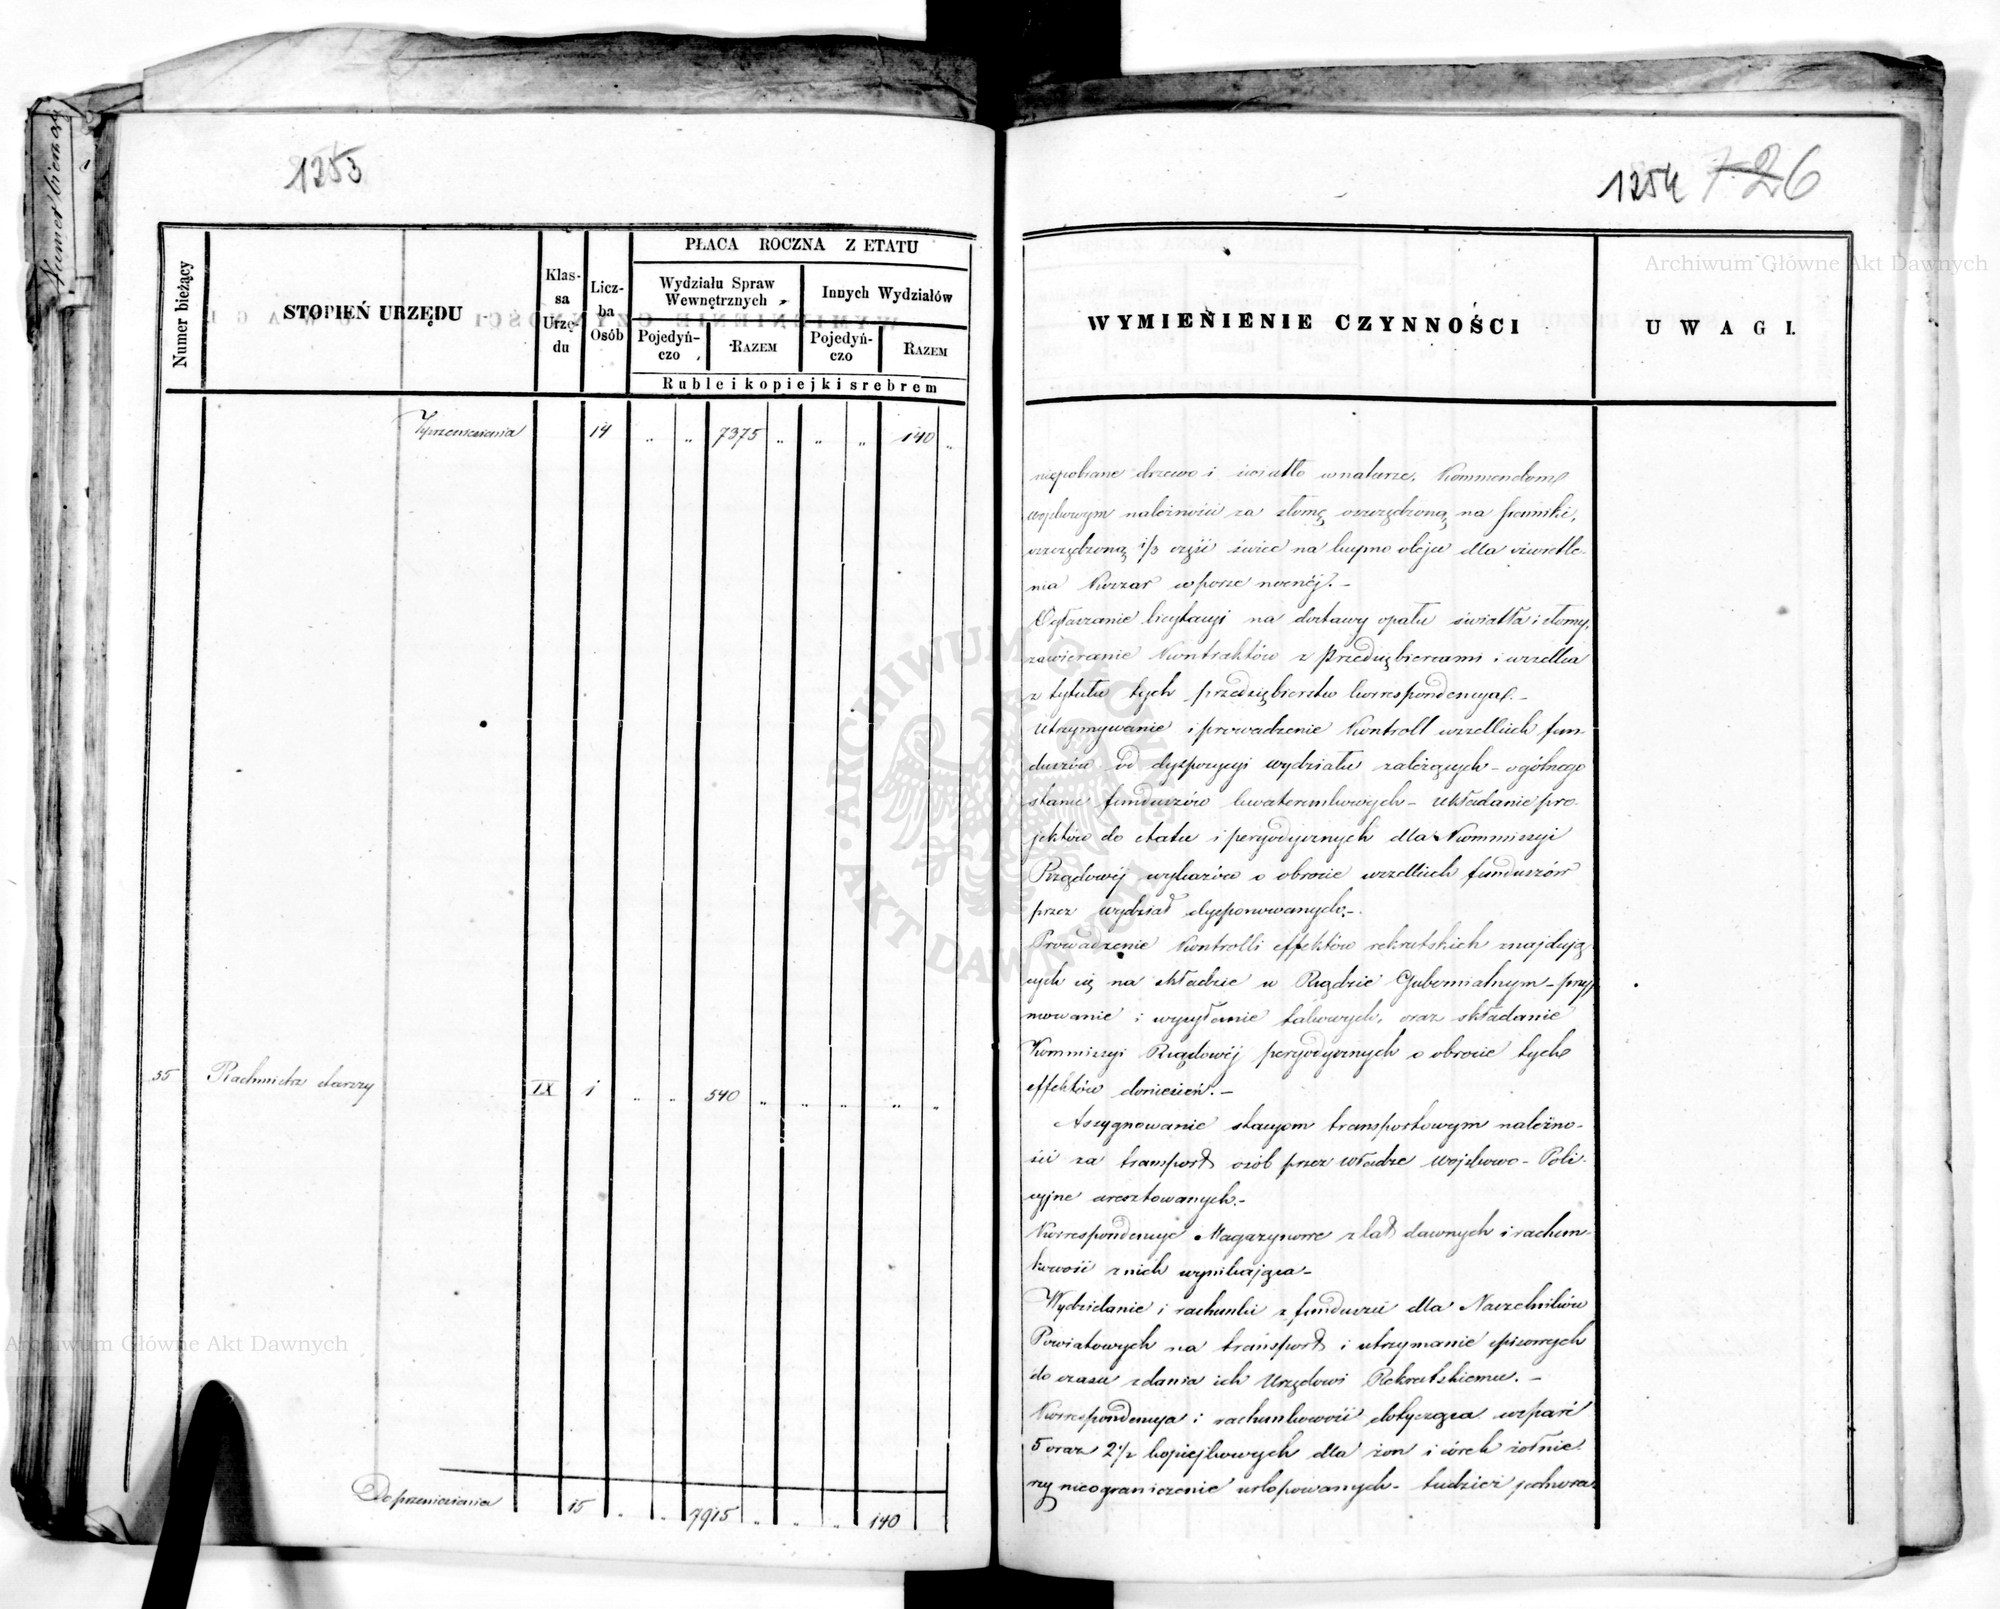 Numer bieżący
1253
Numer bieżący
STOPIEŃ URZĘDU
Klas-
sa
Urzę-
du
Licz-
ba
Osób
PŁACA ROCZNA Z ETATU
Wydziału Spraw
Wewnętrznych
Innych Wydziałów
Pojedyń-
czo
RAZEM
Pojedyń-
czo
RAZEM
Ruble i kopiejki srebrem
Z przeniesienia 14 „ „ 7375 „ „ „ 140 „
55 Rachmistrz starszy IX 1 „ „ 540 „ „ „ „ „
Do przeniesienia 15 „ „ 7915 „ „ „ 140
1254 726
WYMIENIENIE CZYNNOŚCI
UWAGI.
niepobrane drzewo i światło w naturze. Kommendom
wojskowym należności za słomę oszczędzoną na sienniki,
oszczędzoną 1/3 część świec na kupno oleju dla oświetle-
nia Koszar w porze nocnéj. –
Ogłaszanie licytacyi na dostawy opału światła i słomy,
zawieranie Kontraktów z Przedsiębiercami i wszelka
z tytułu tych przedsiębierstw korrespondencya. –
Utrzymywanie i prowadzenie Kontroll wszelkich fun-
duszów od dyspozycyi wydziału zależących – ogólnego
stanu funduszów kwaterunkowych – Układanie pro-
jektów do etatu i peryodycznych dla Kommissyi
Rządowéj wykazów o obrocie wszelkich funduszów
przez wydział dysponowanych. –
Prowadzenie Kontrolli effektów rekrutskich znajdują-
cych się na składzie w Rządzie Gubernialnym – przyj
mowanie i wysyłanie takowych, oraz składanie
Kommissyi Rządowéj peryodycznych o obrocie tych
effektów doniesień. –
Assygnowanie stacyom transportowym należno-
ści za transport osób przez władze wojskowo-Poli-
cyjne aresztowanych. –
Korrespondencye Magazynowe z lat dawnych i rachun-
kowość z nich wynikająca –
Wydzielanie i rachunki z funduszu dla Naczelników
Powiatowych na transport i utrzymanie spisowych
do czasu zdania ich Urzędowi Rekrutskiemu. –
Korrespondencya i rachunkowość dotycząca wsparć
5 oraz 2 1/2 kopiejkowych dla żon i córek żołnie
rzy nieograniczenie urlopowanych – tudzież jednora-
Archiwum Główne Akt Dawnych
Archiwum Główne Akt Dawnych
ARCHIWUM GŁÓWNE AKT DAWNYCH